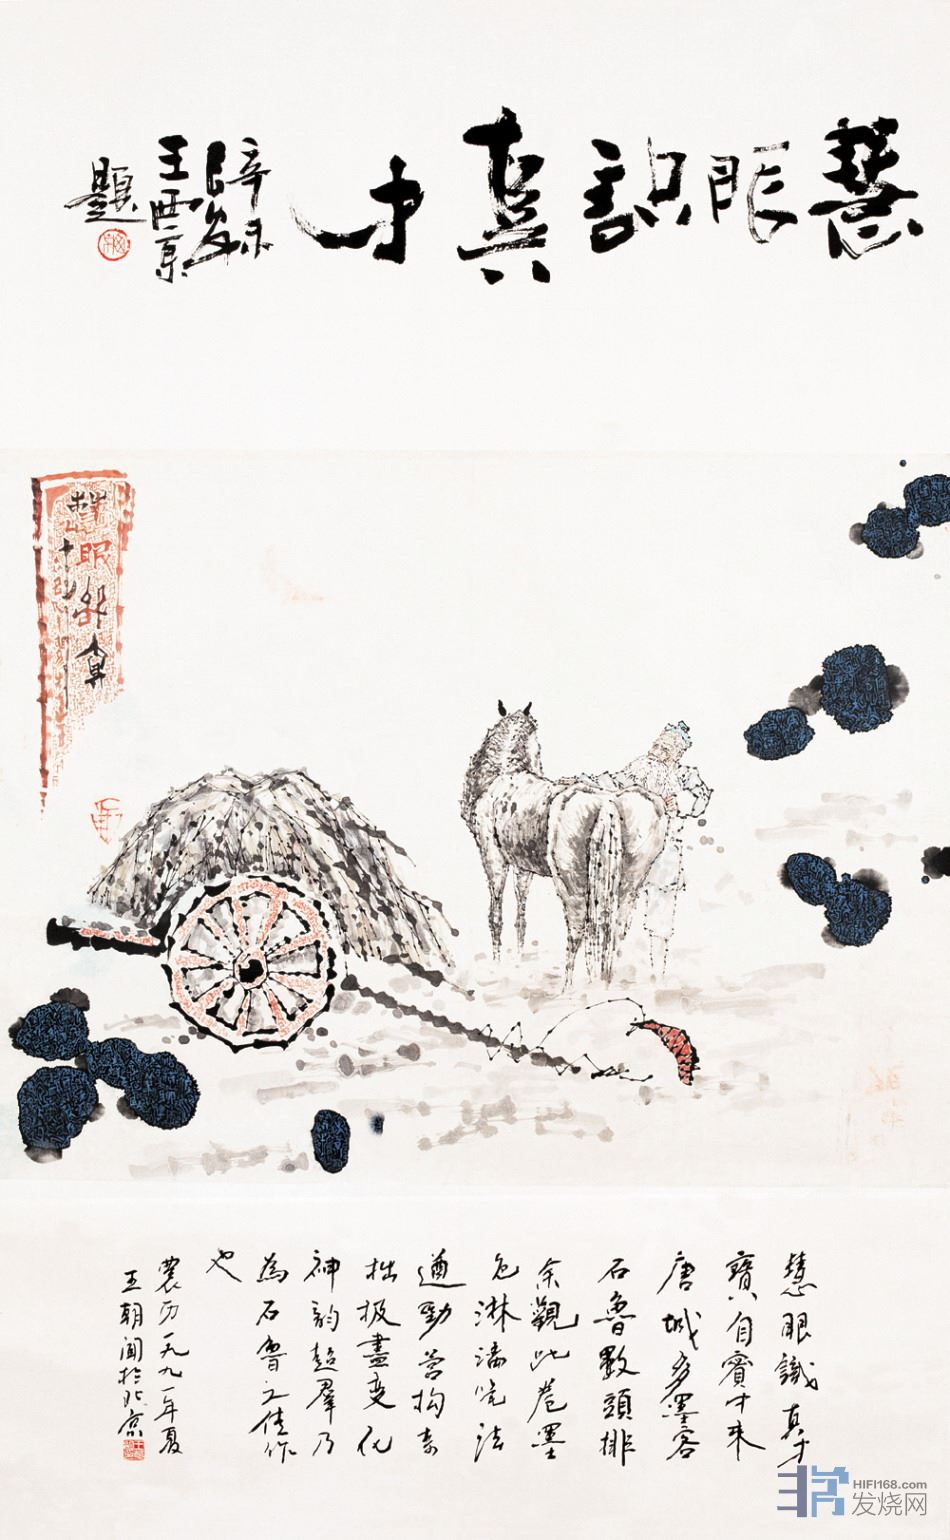 慧眼識真才
辛未
王西京
題
慧眼識真才
寶自賓中來
唐城多墨客
石魯數頭排
余觀此卷墨
色淋漓筆法
遒勁營構奇
拙极盡变化
神韵超羣乃
為石魯之佳作
也
農历一九九一年夏
王朝聞於北京
HIFI168.com
发烧网